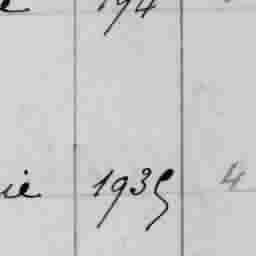 e 194
ie 1935 4